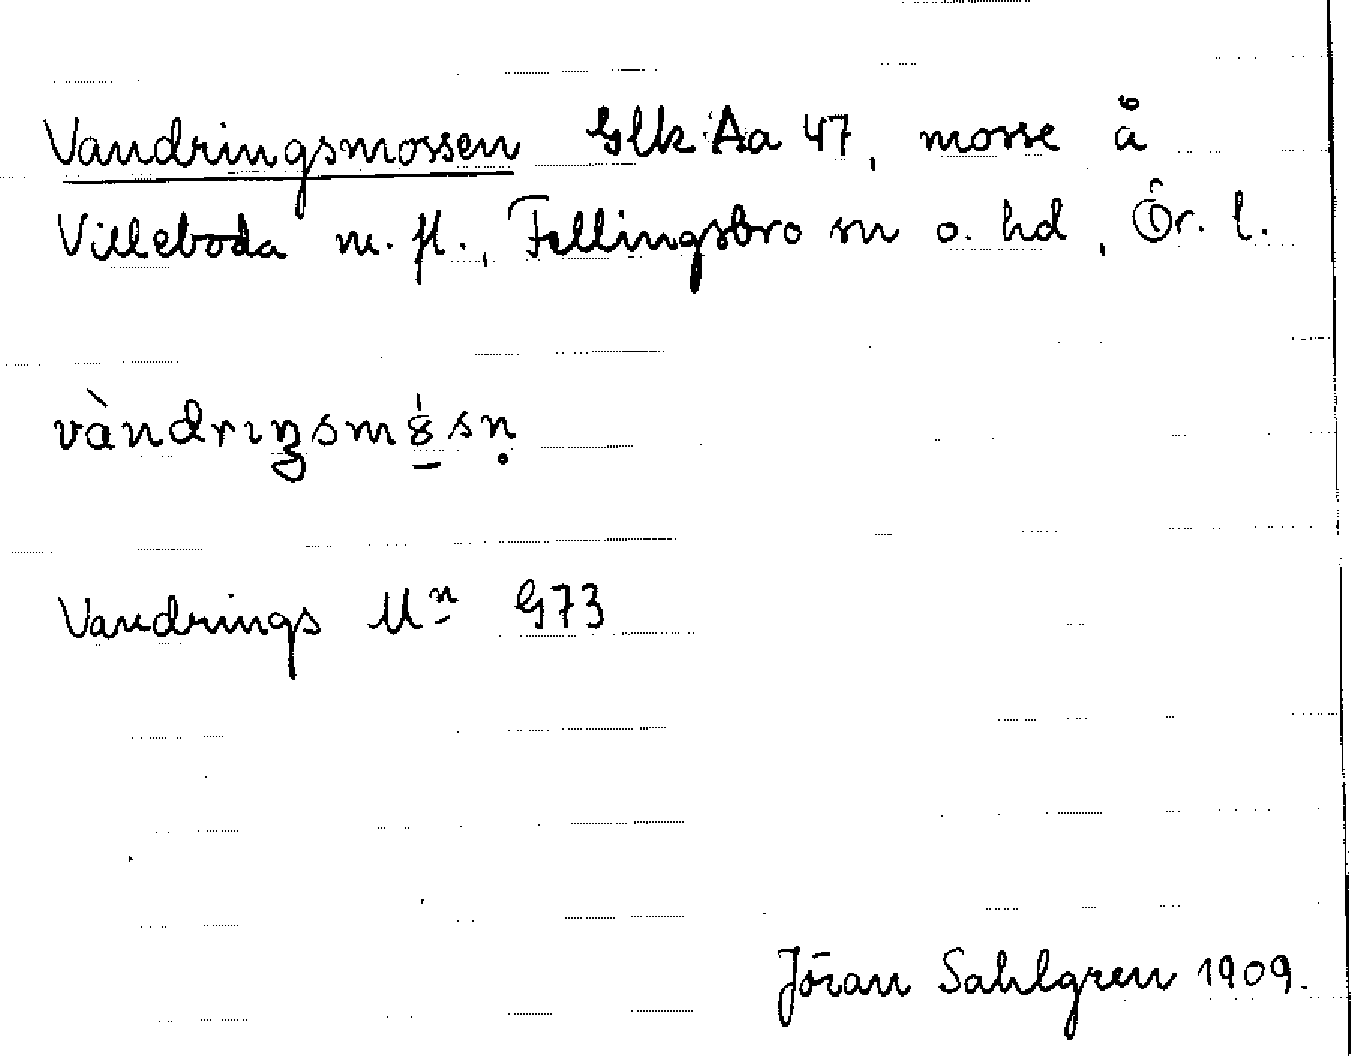 Vandringsmossen Glk Aa 47, mosse å
Villeboda m. fl., Fellingsbro sn o. hd, Ör. l.
vàndrıŋsm8̱́sṇ
Vandrings Mⁿ G73
Jöran Sahlgren 1909.